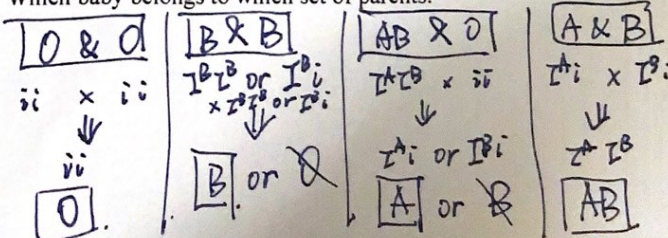 Which baby belongs to which set of parents.
O & O
ii × ii
ii
O.
B & B
IᴮIᴮ or Iᴮi
× IᴮIᴮ or Iᴮi
B. or O
AB & O
IᴬIᴮ × ii
Iᴬi or Iᴮi
A or B
A & B
Iᴬi × Iᴮi
IᴬIᴮ
AB